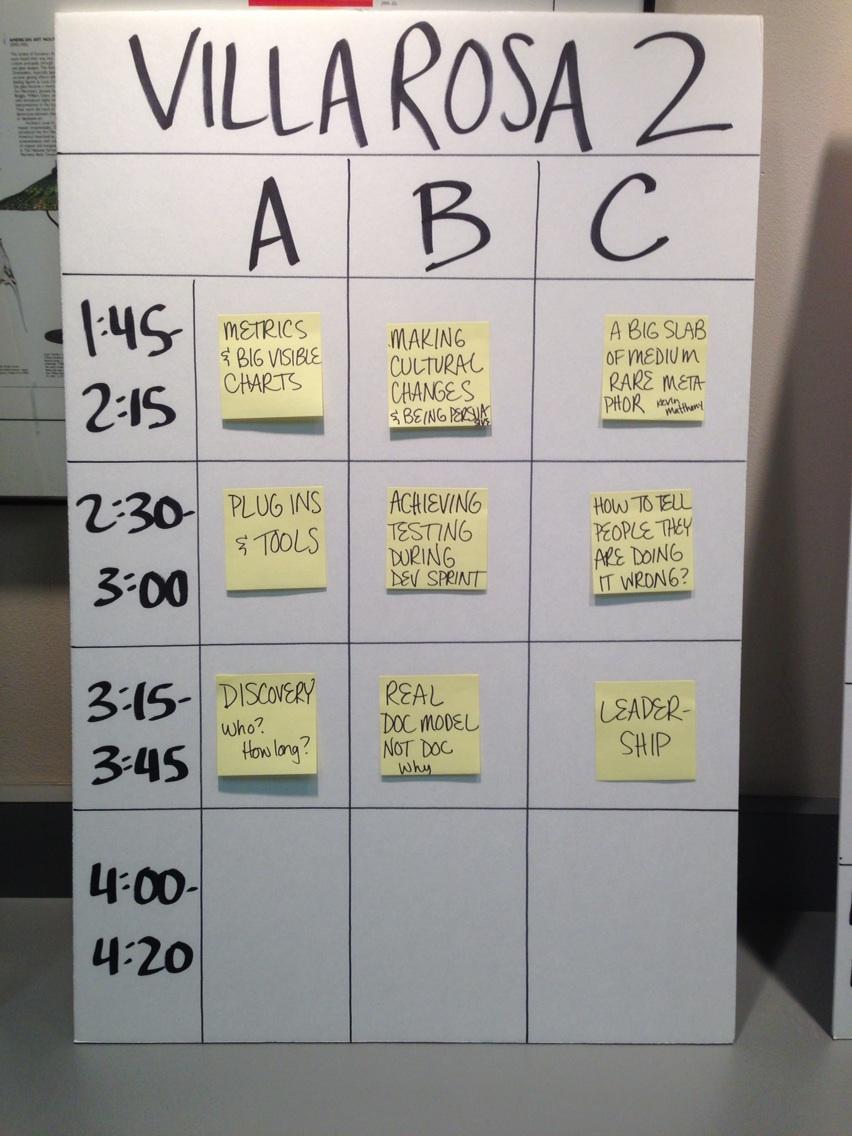 VILLA ROSA 2
A B C
1:45-
2:15
METRICS
& BIG VISIBLE
CHARTS
MAKING
CULTURAL
CHANGES
& BEING PERSUA
SIVE
A BIG SLAB
OF MEDIUM
RARE META
PHOR Kevin
Matthews
2:30-
3:00
PLUG INS
& TOOLS
ACHIEVING
TESTING
DURING
DEV SPRINT
HOW TO TELL
PEOPLE THEY
ARE DOING
IT WRONG?
3:15-
3:45
DISCOVERY
Who?
How long?
REAL
DOC MODEL
NOT DOC
Why
LEADER-
SHIP
4:00-
4:20